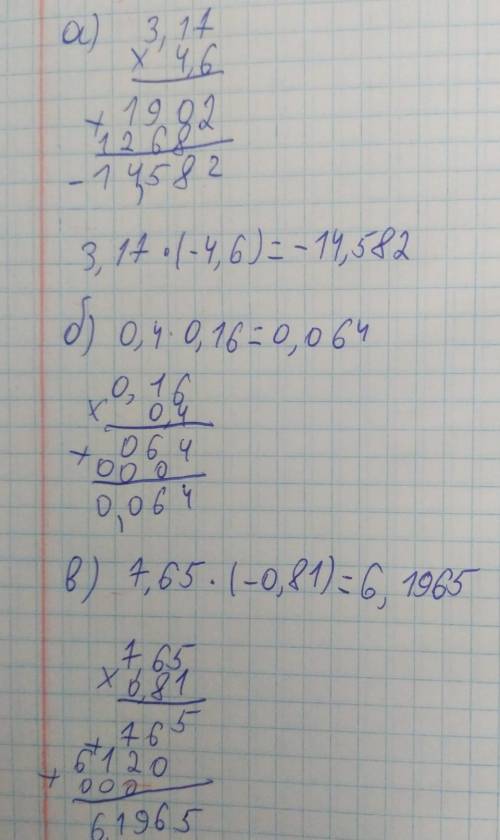 а) 3,17
× 4,6
+ 1902
1268
-14,582
3,17·(-4,6)=-14,582
б) 0,4·0,16=0,064
0,16
× 0,4
+ 064
000
0,064
в) 7,65·(-0,81)=6,1965
7,65
× 0,81
765
+
6120
+ 000
6,1965